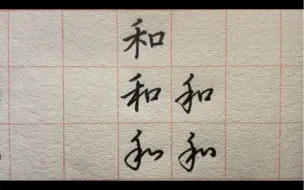 和
和 和
和 和